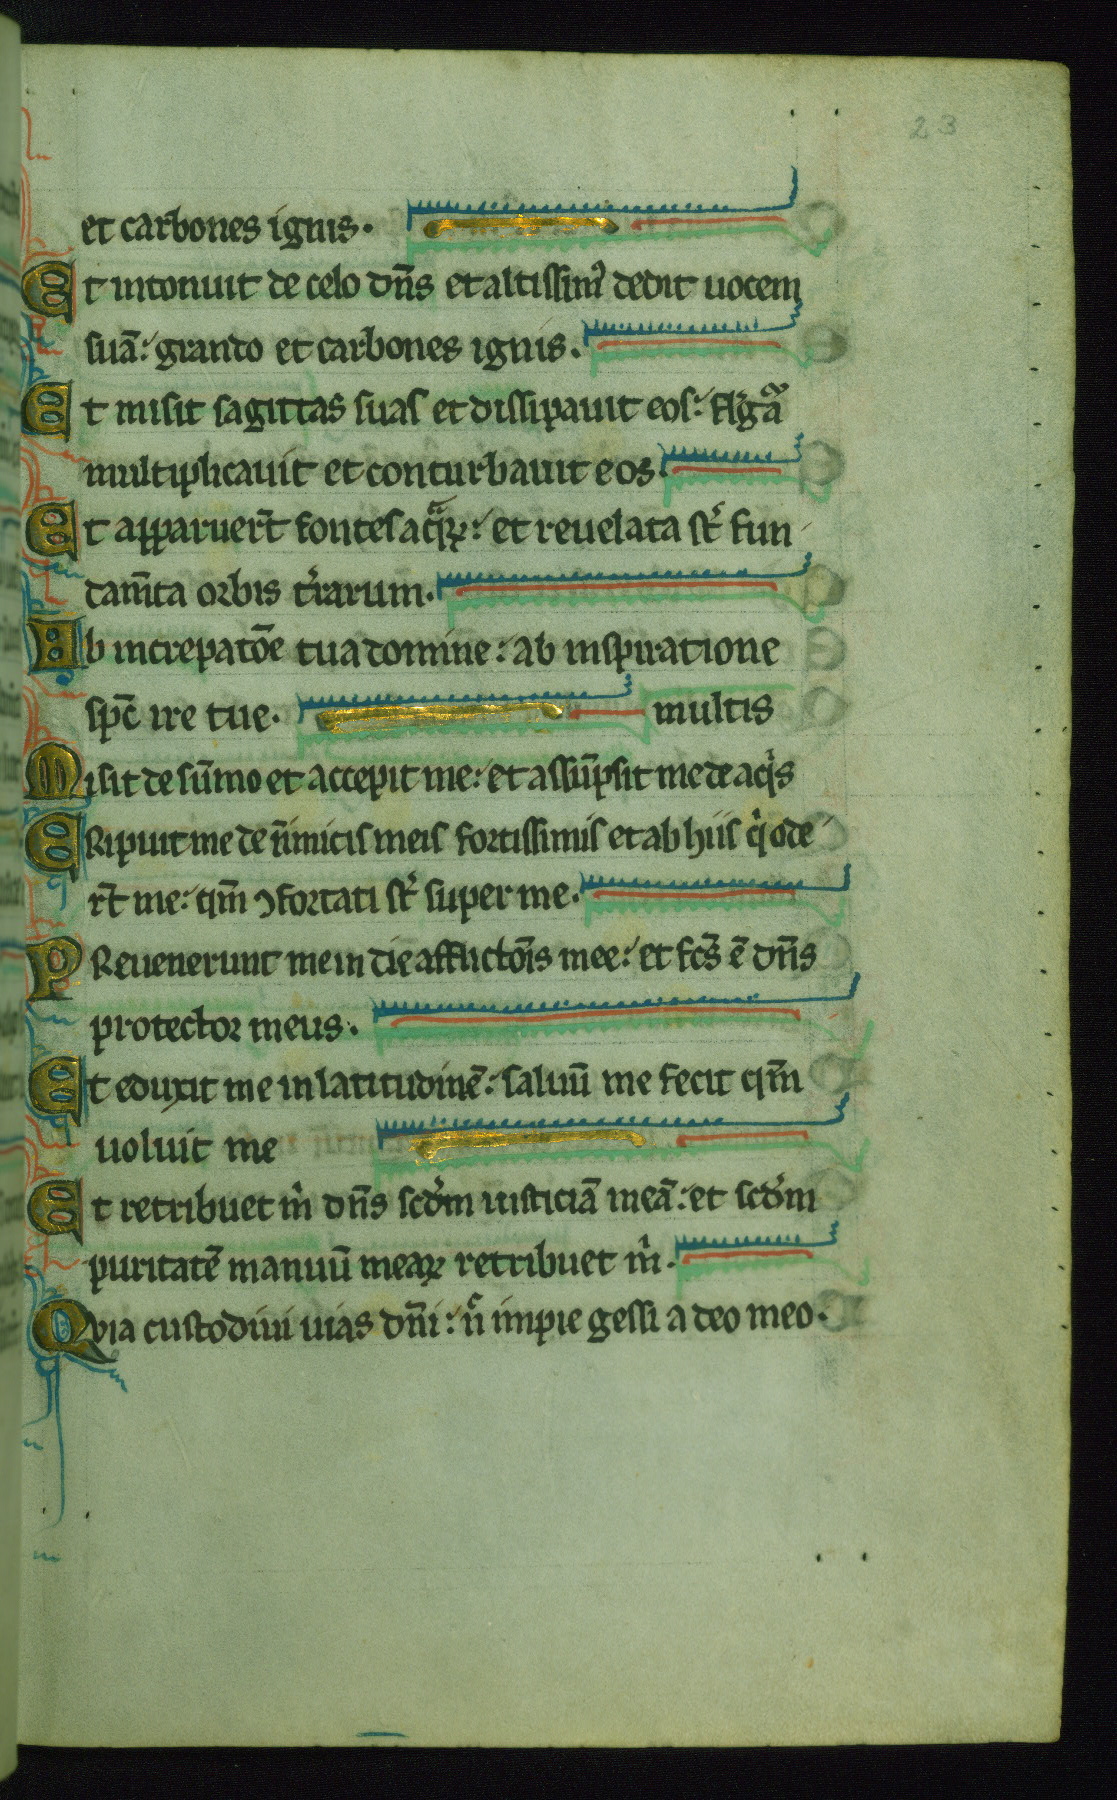 23
et carbones ignis.
Et intonuit de celo dn̄s et altissim᾽ dedit uocem
suā: grando et carbones ignis.
Et misit sagittas suas et dissipauit eos: fulg̾a
multiplicauit et conturbauit eos.
Et apparuer̄t fontes aq̄ꝝ: et reuelata st̄ fun
dam̄ta orbis t̄rarum.
Ab increpatōe tua domine: ab inspiratione
sp̄c ire tue. multis
Misit de sūmo et accepit me: et assūpsit me de aqͥs
ERipuit me de inimicis meis fortissimis et ab hiis qͥ ode
rt̄ me: qm̄ ꝯfortati st̄ super me.
PReuenerunt me in die afflictōis mee: et fcs̄ ē dn̄s
protector meus.
Et eduxit me in latitudinē: saluū me fecit qm̄
uoluit me
Et retribuet m̄ dn̄s scd̄m iusticiā meā: et scd̄m
puritatē manuū meaꝝ retribuet m̄.
Qvia custodiui uias dn̄i: n̄ impie gessi a deo meo.